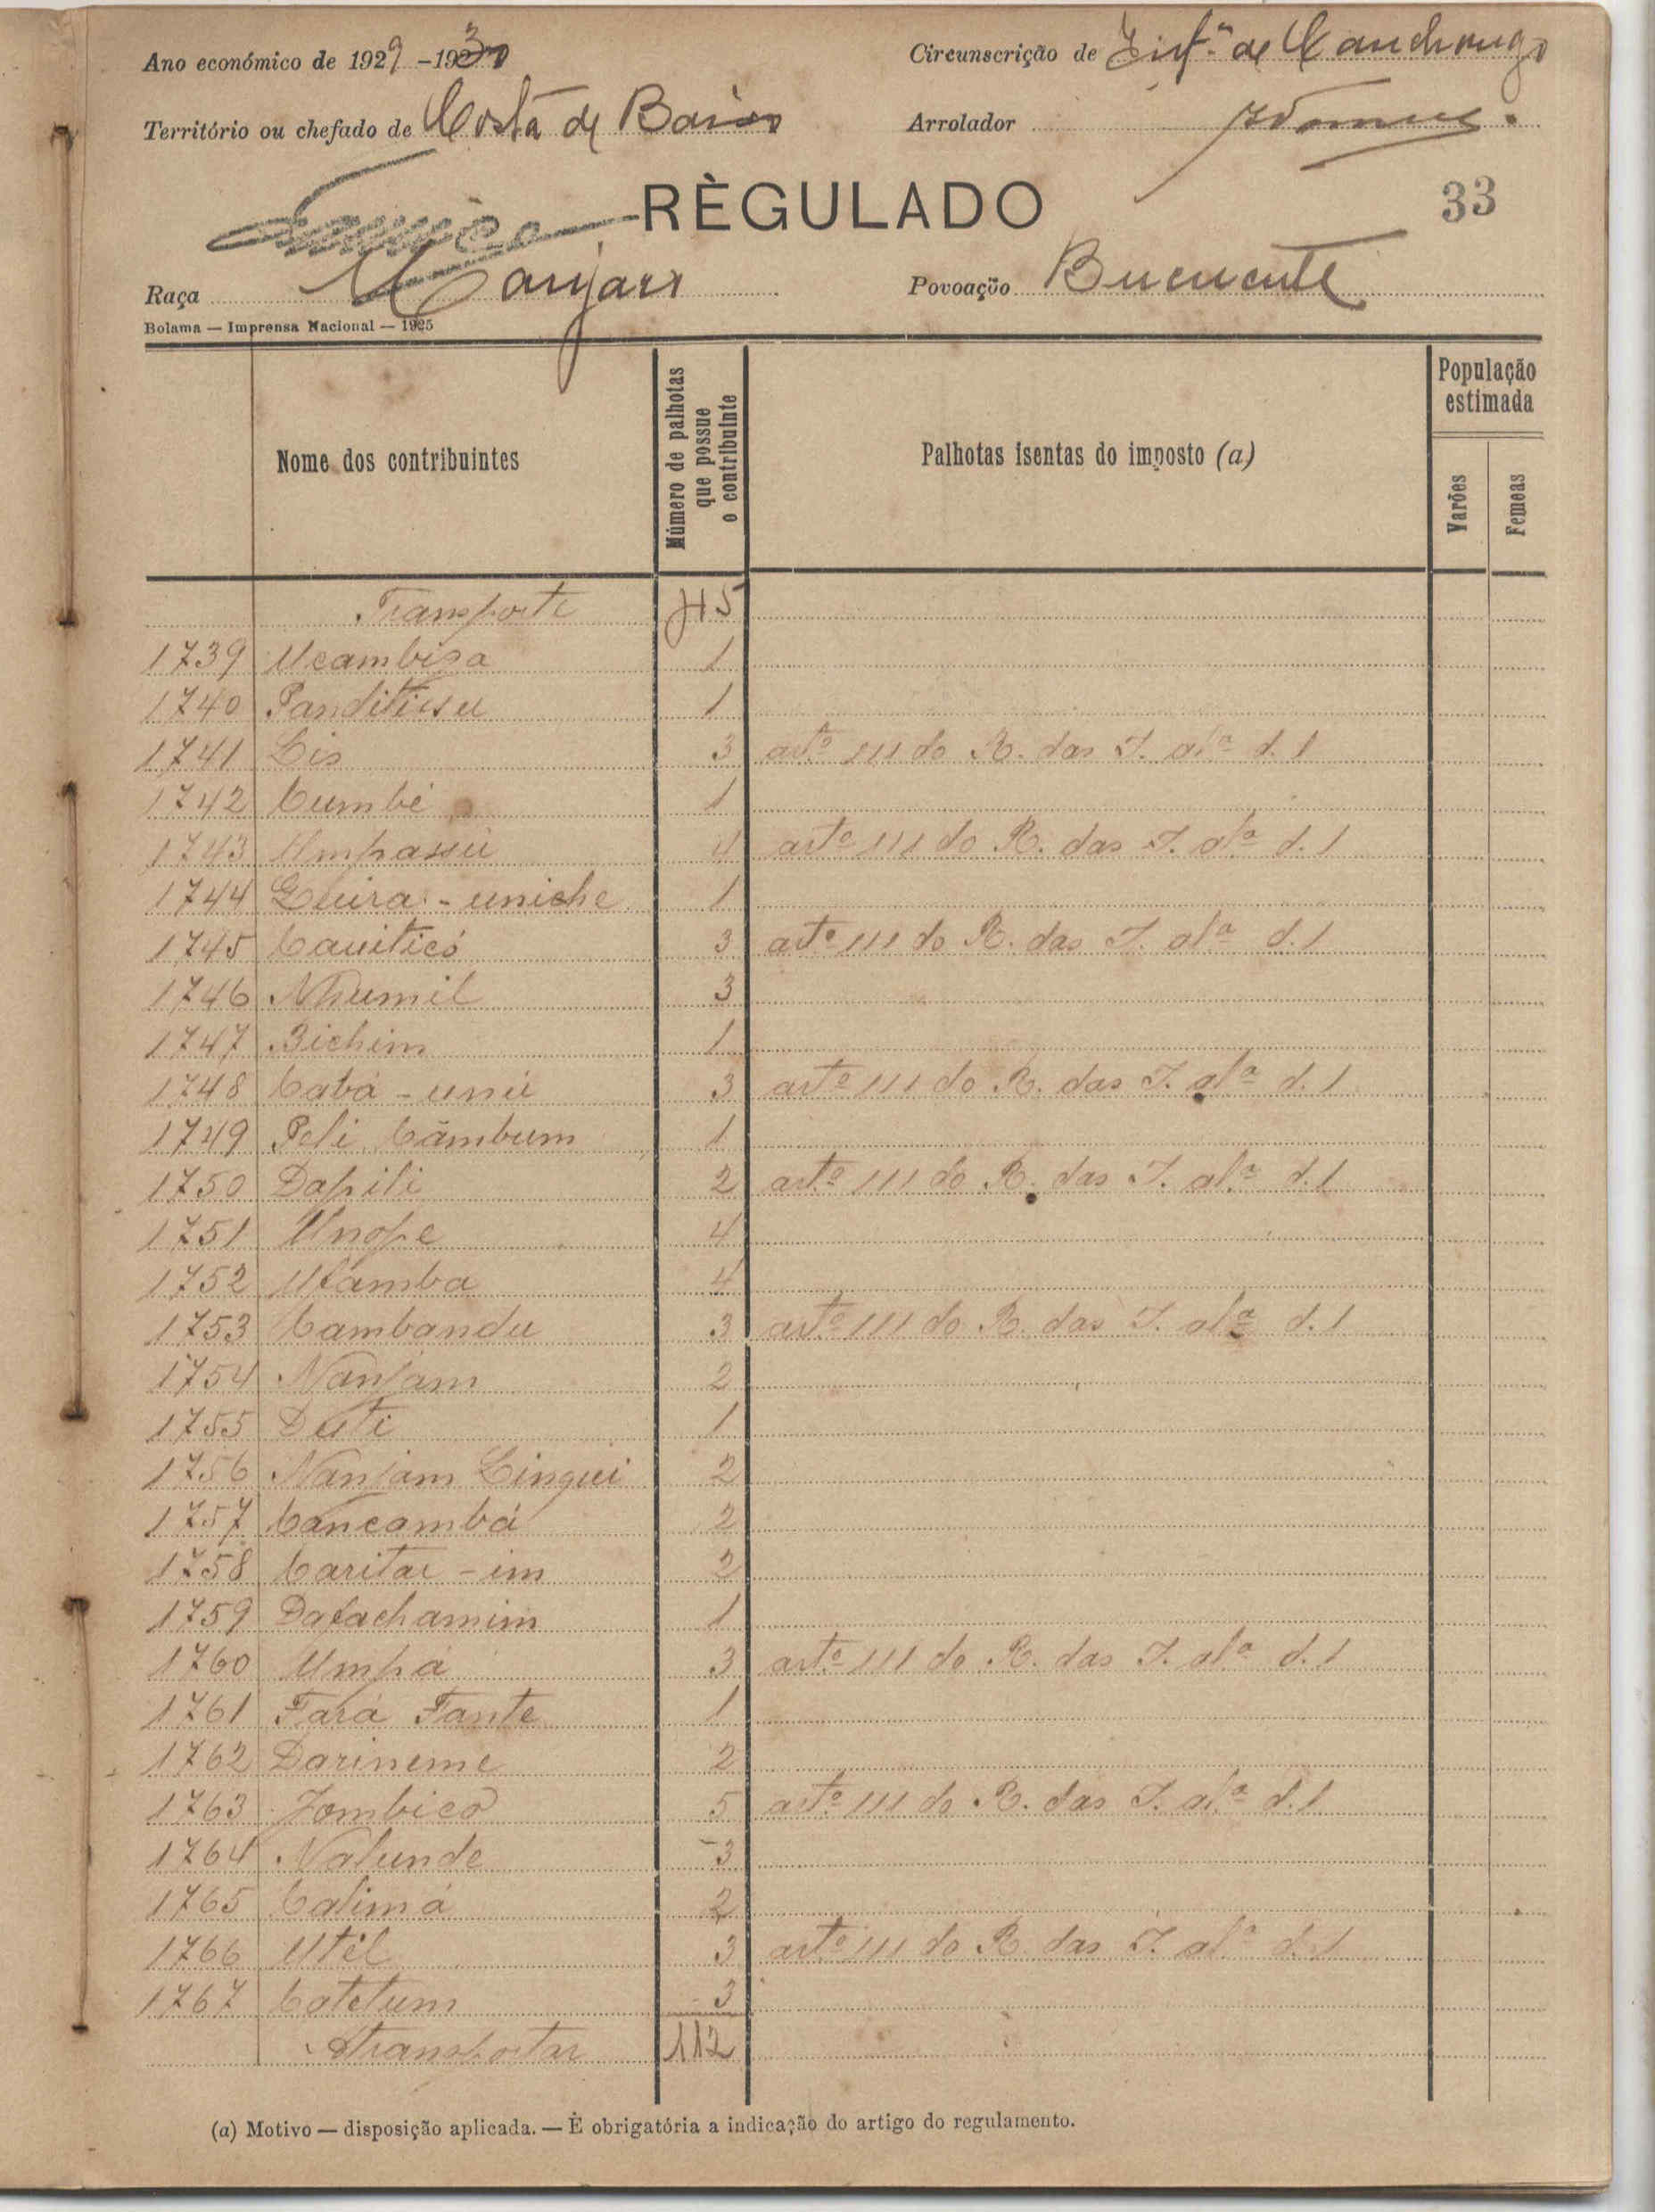 Ano económico de 1929 -1930
Circunscrição de de Canchungo
Território ou chefado de Costa de Baixo
Arrolador
RÈGULADO
33
Raça Manjaco
Povoação Bucucute
Bolama — Imprensa Nacional — 1925
Nome dos contribuintes
Número de palhotas que possue o contribuinte
Palhotas isentas do imposto (a)
População estimada
Varões
Femeas
Transporte 45
1739 Ucambisa 1
1740 Panditiusu 1
1741 Lis 3 artº 111 do R. das I. alª d. 1
1742 Cumbé 1
1743 Umpassú 4 artº 111 do R. das I. alª d. 1
1744 - uniche 1
1745 Cauiticó 3 artº 111 do R. das I. alª d. 1
1746 Nhumil 3
1747 Bichim 1
1748 Cabá - unú 3 artº 111 do R. das I. alª d. 1
1749 Peli Câmbum 1
1750 Dapili 2 artº 111 do R. das I. alª d. 1
1751 Unope 4
1752 Utamba 4
1753 Cambandu 3 artº 111 do R. das I. alª d. 1
1754 Nanjam 2
1755 Duti 1
1756 Nanjam Lingui 2
1757 Cancambá 2
1758 Caritar - im 2
1759 Datachamim 1
1760 Umpá 3 artº 111 do R. das I. alª d. 1
1761 Fará Fante 1
1762 Darineme 2
1763 Jombicó 5 artº 111 do R. das I. alª d. 1
1764 Nalunde 3
1765 Calimá 2
1766 Utél 3 artº 111 do R. das I. alª d. 1
1767 Catetum 3
A transportar 112
(a) Motivo — disposição aplicada. — É obrigatória a indicação do artigo do regulamento.